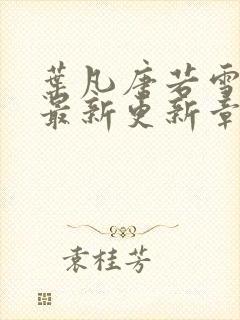 葉凡唐若雪
最新更新章
袁桂芳